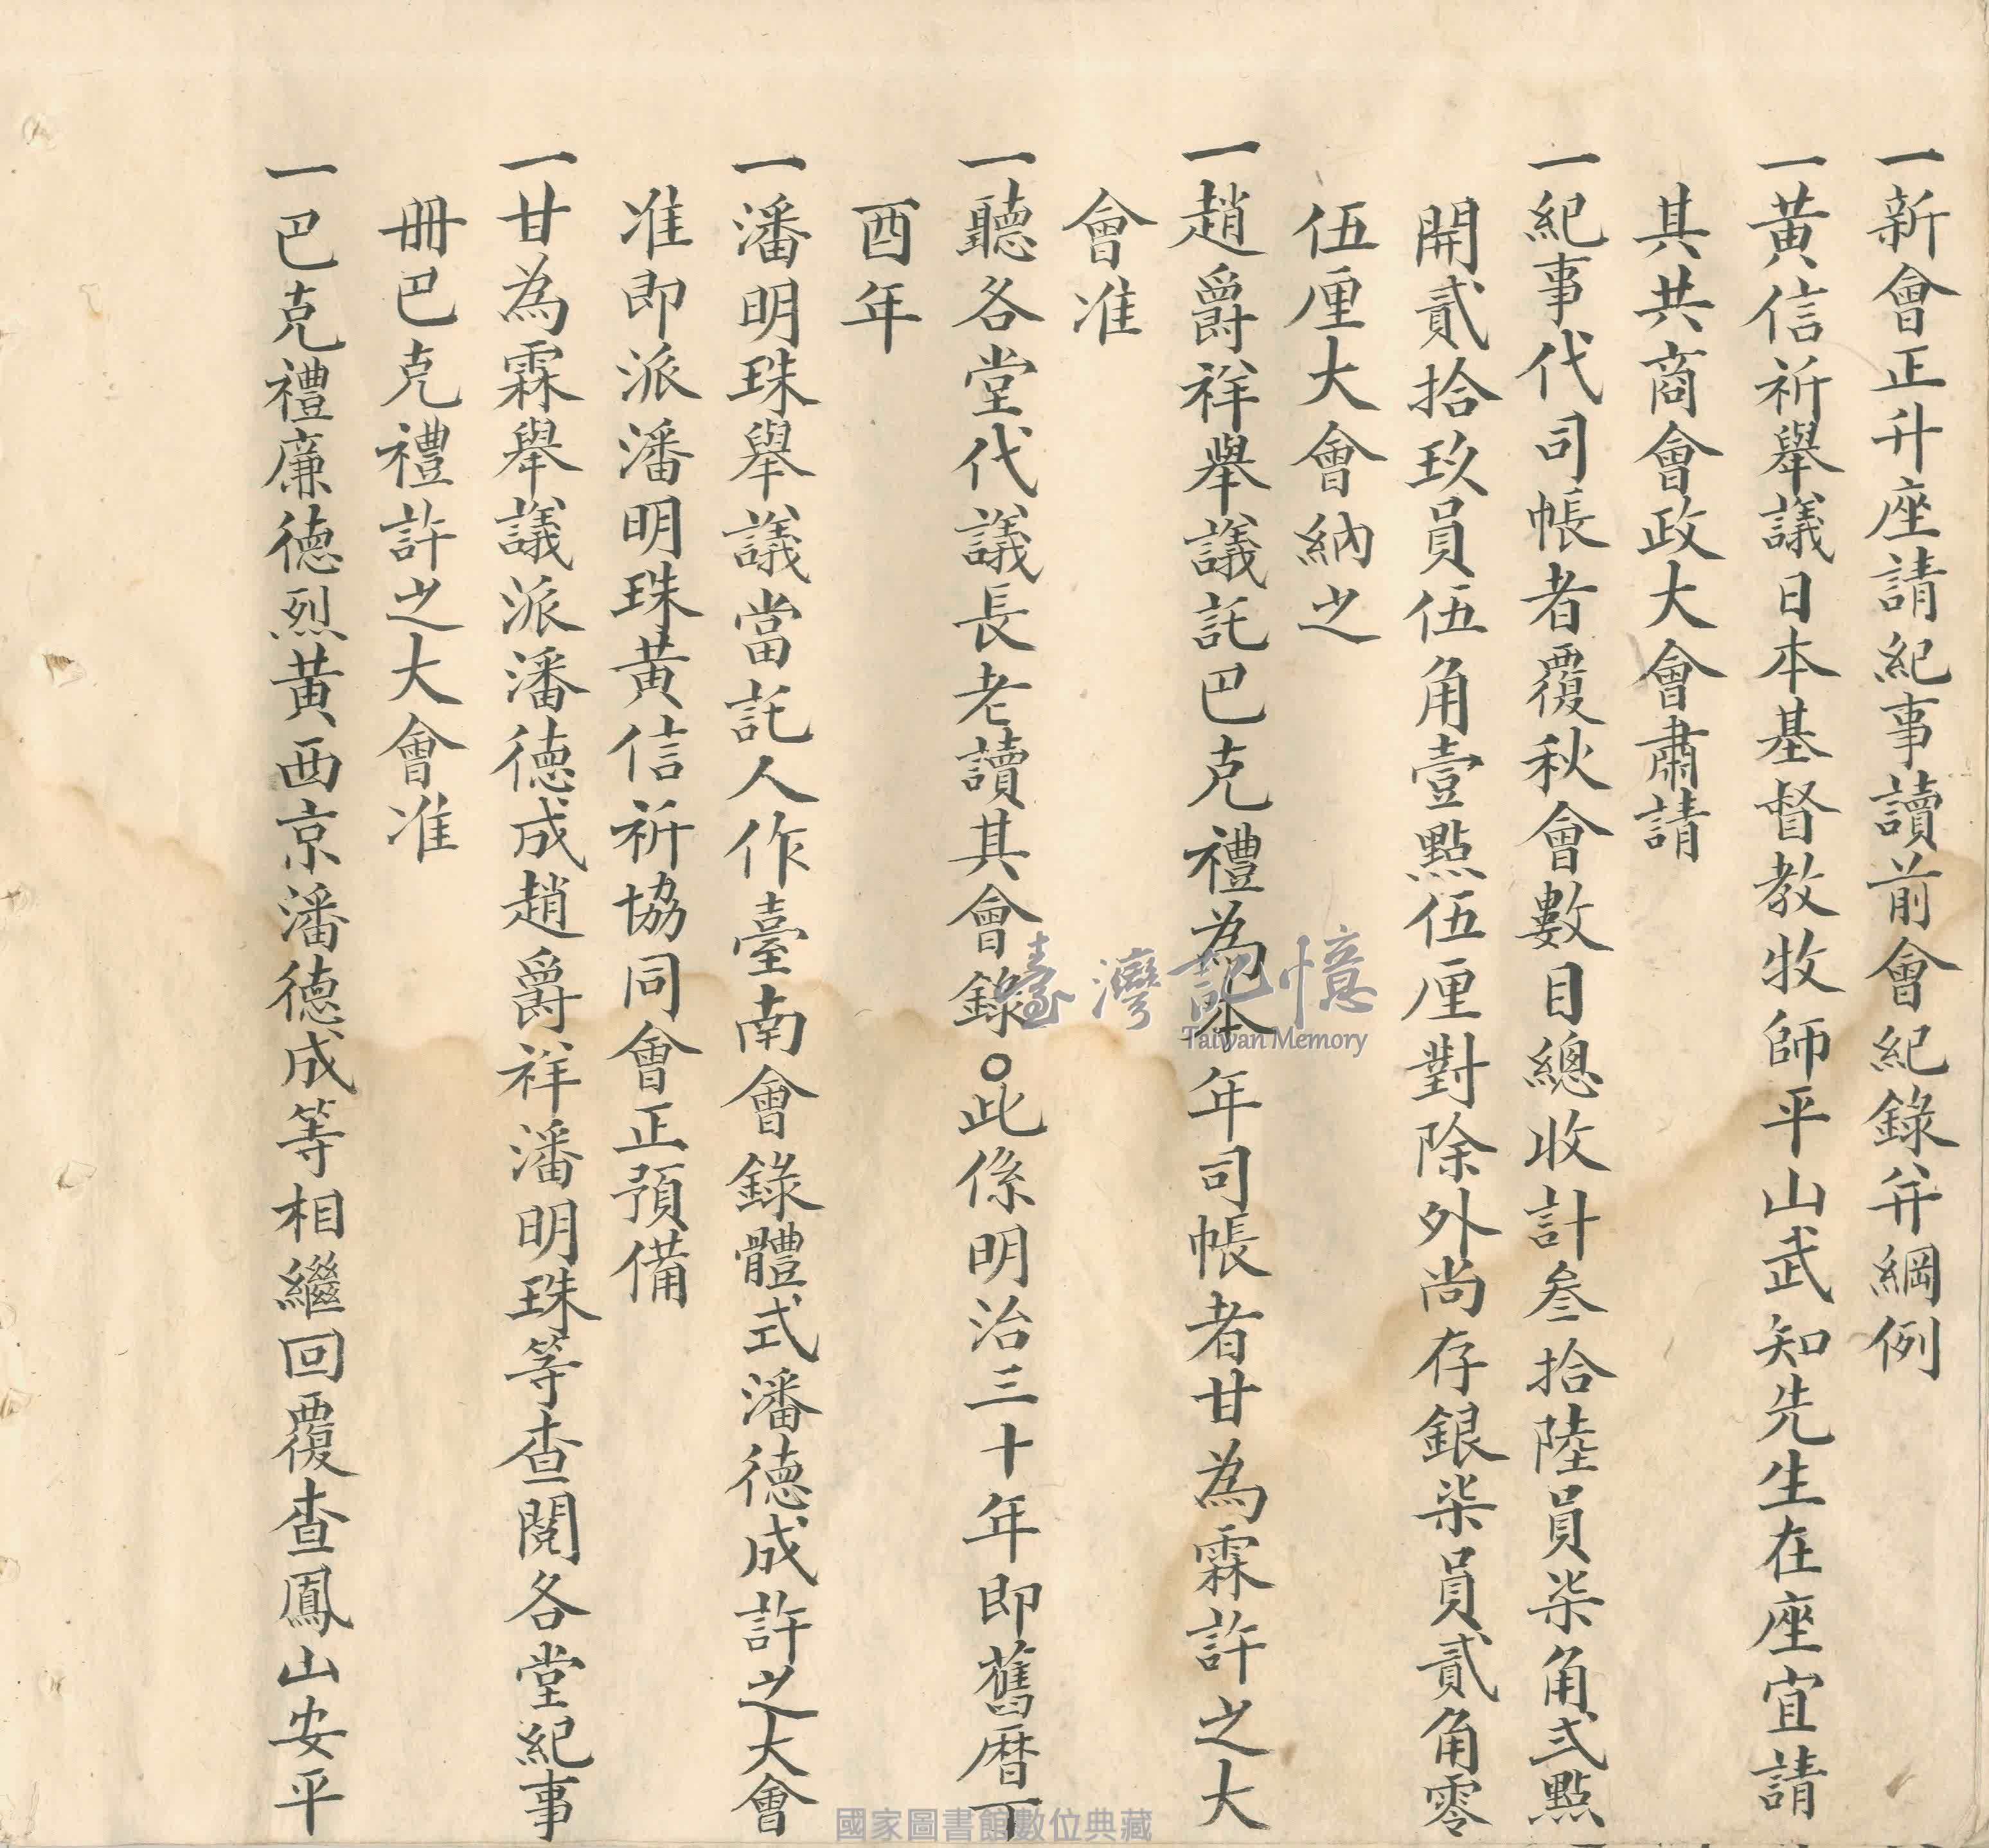 一新會正升座請紀事讀前會紀錄并綱例
一黄信祈舉議日本基督教牧師平山武知先生在座宜請
其共商會政大會肅請
一紀事代司帳者覆秋會數目總收計叁拾陸員柒角弍點
開貳拾玖員伍角壹點伍厘對除外尚存銀柒員貳角零
伍厘大會納之
一趙爵祥舉議託巴克禮為本年司帳者甘為霖許之大
會准
一聽各堂代議長老讀其會錄○此係明治三十年即舊曆丁
酉年
一潘明珠舉議當託人作臺南會錄體式潘德成許之大會
准即派潘明珠黄信祈協同會正預備
一甘為霖舉議派潘德成趙爵祥潘明珠等查閱各堂紀事
冊巴克禮許之大會准
一巴克禮廉德烈黄西京潘德成等相繼回覆查鳳山安平
臺灣記憶
Taiwan Memory
國家圖書館數位典藏